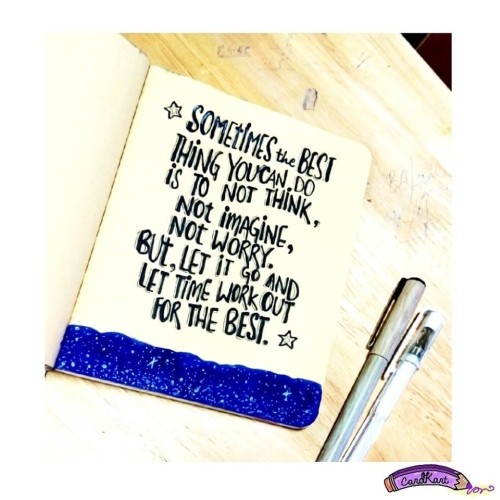 SOMETIMES the BEST
THING YOU CAN DO
IS TO NOT THINK,
NOT IMAGINE,
NOT WORRY.
BUT, LET IT GO AND
LET TIME WORK OUT
FOR THE BEST.
CandKart